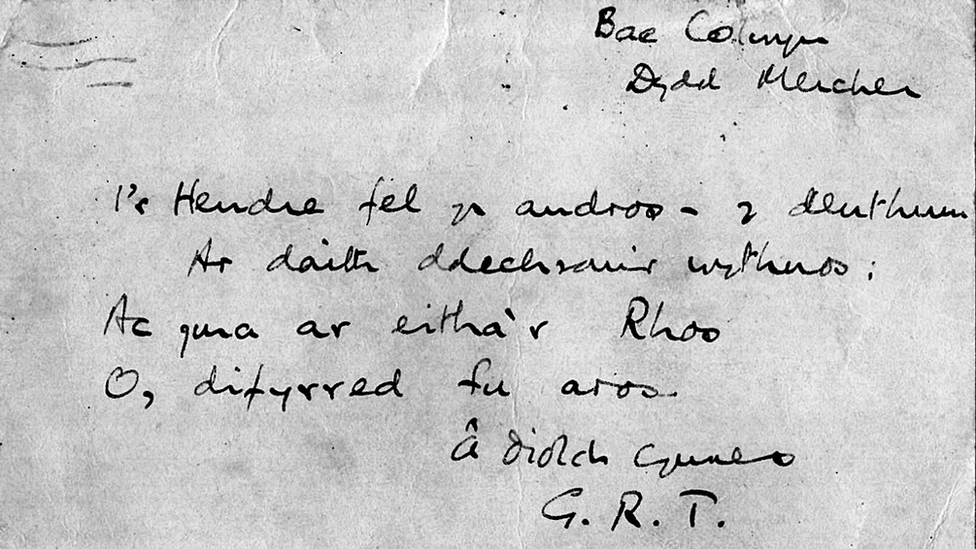 Bae Colwyn
Dydd Mercher
I'r Hendre fel yr andros – y deuthum
Ar daith ddechrau'r wythnos;
Ac yma ar eitha'r Rhos
O, difyrred fu aros.
Â diolch cynnes
G. R. T.